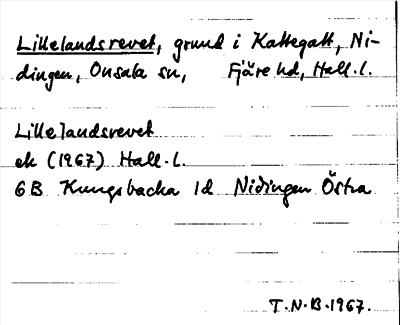 Lillelandsrevet, grund i Kattegatt, Ni-
dingen, Onsala sn, Fjäre hd, Hall.l.
Lillelandsrevet
ek (1967) Hall.l.
6B Kungsbacka 1d Nidingen Östra
T.N.B.1967.